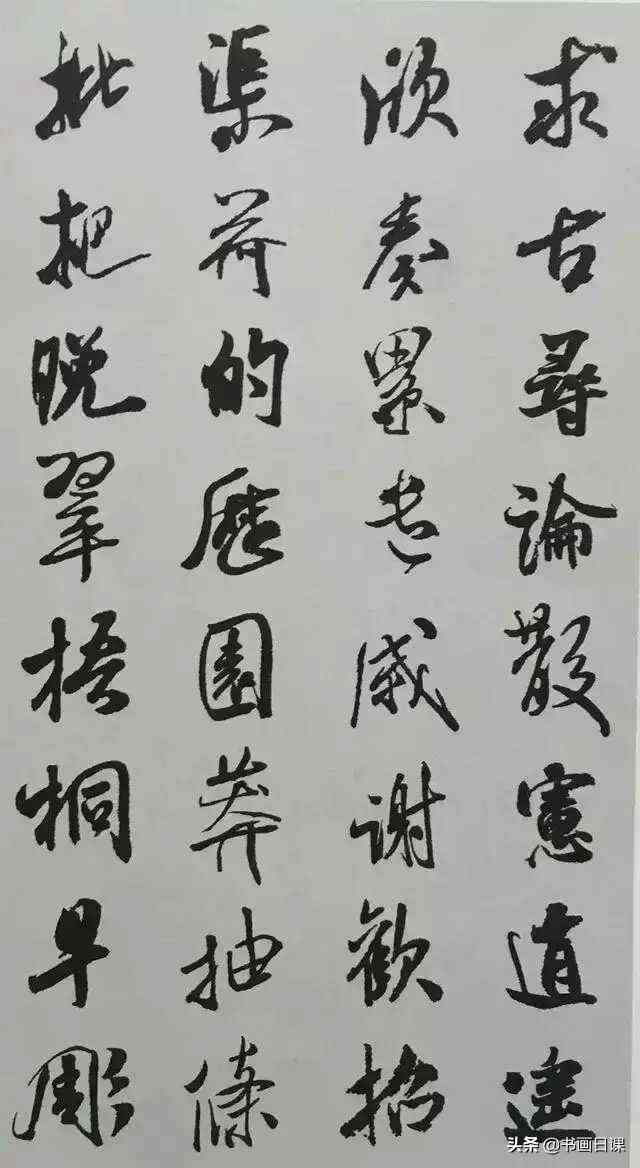 求古尋論散慮逍遙
欣奏累遣慼謝歡招
渠荷的歷園莽抽條
枇杷晚翠梧桐早彫
头条 @书画日课